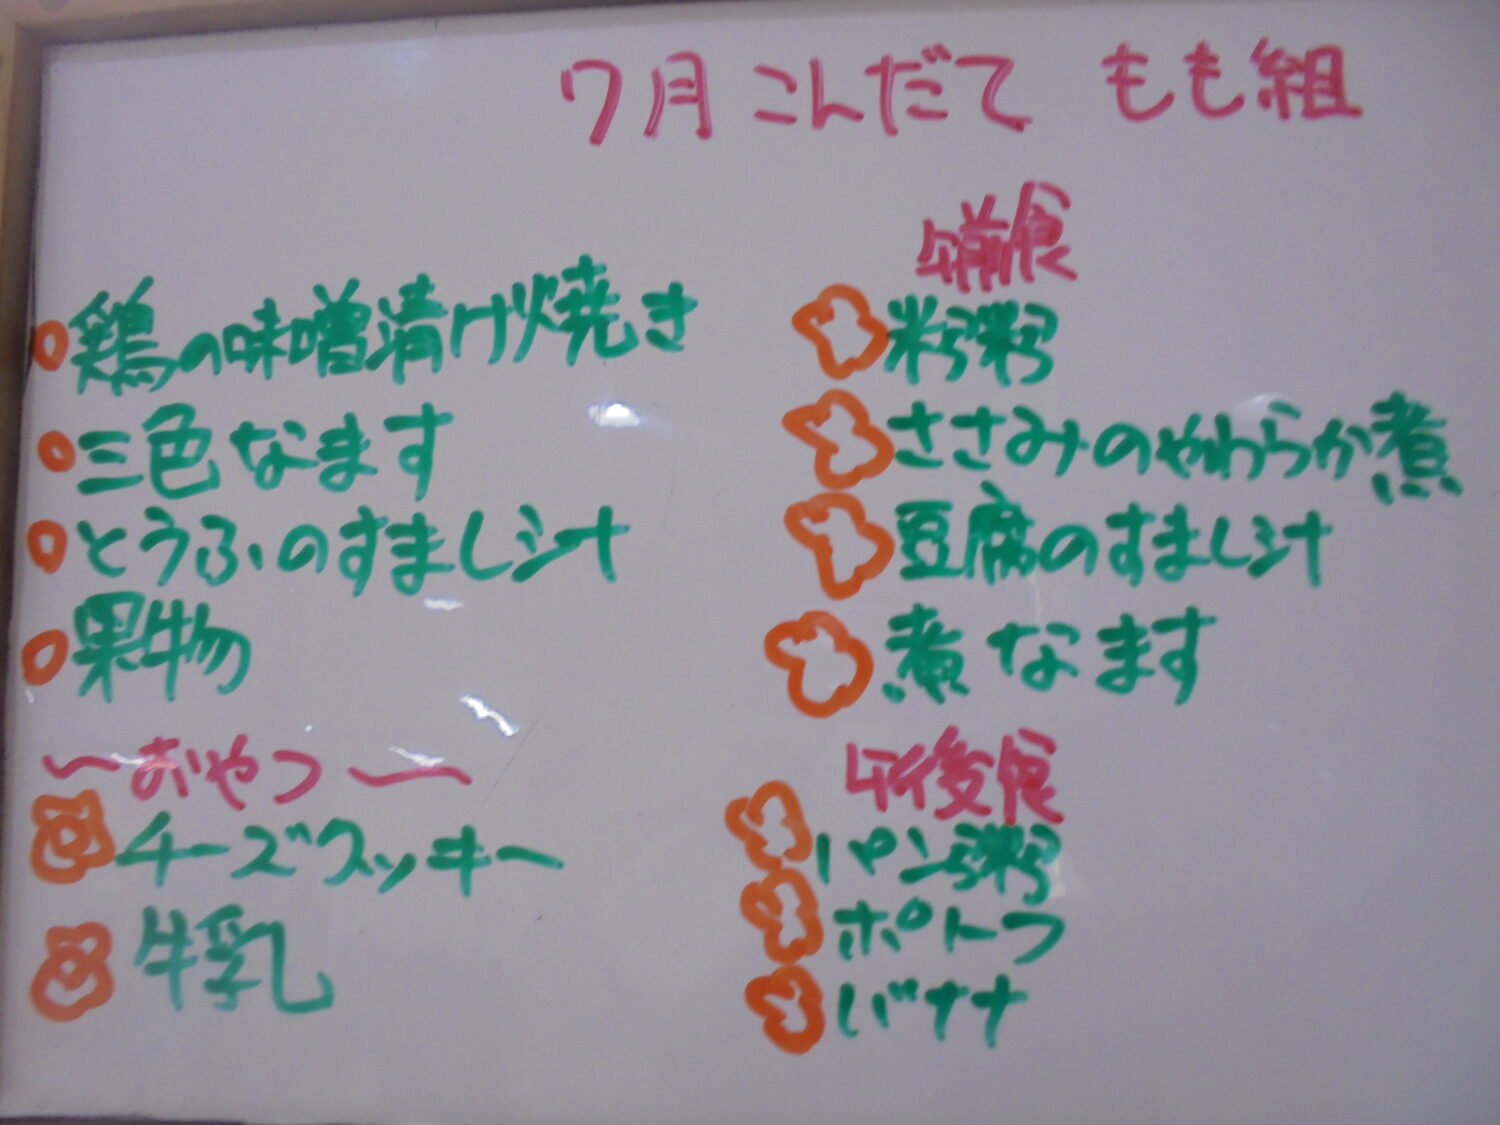 7月 こんだて もも組
鶏の味噌漬け焼き
三色なます
とうふのすまし汁
果物
〜おやつ〜
チーズクッキー
牛乳
午前食
粥
ささみのやわらか煮
豆腐のすまし汁
煮なます
午後食
パン粥
ポトフ
バナナ